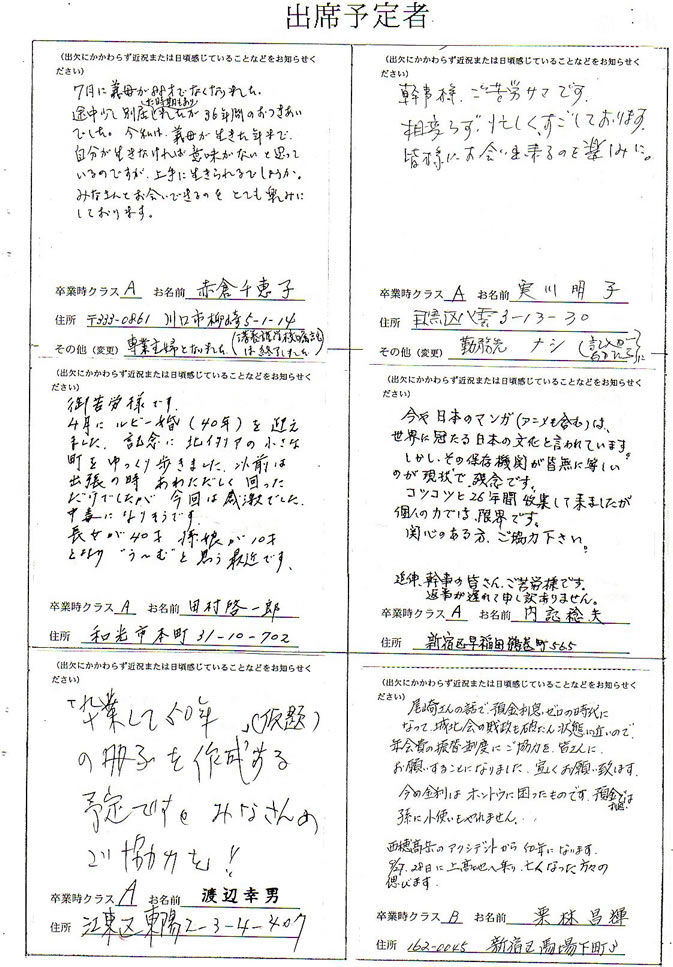 出席予定者
(出欠にかかわらず近況または日頃感じていることなどをお知らせく
ださい)
7月に義母が88才でなくなりました。
途中少し別居した時期もありましたが36年間のおつきあい
でした。今私は、義母が生きた年まで、
自分が生きなければ意味がないと思って
いるのですが、上手に生きられるでしょうか。
みなさんとお会いできるのをとても楽しみに
しております。
卒業時クラス A お名前 赤倉千恵子
住所 〒333-0861 川口市柳崎5-1-14
その他(変更) 専業主婦となりました
は終了しました
(出欠にかかわらず近況または日頃感じていることなどをお知らせく
ださい)
幹事様、ご苦労サマです。
相変らず、忙しくすごしております。
皆様にお会い出来るのを楽しみに。
卒業時クラス A お名前 実川明子
住所 目黒区八雲3-13-30
その他(変更) 勤務先 ナシ
(出欠にかかわらず近況または日頃感じていることなどをお知らせく
ださい)
御苦労様です。
4月にルビー婚(40年)を迎え
ました。記念に北イタリアの小さな
町をゆっくり歩きました。以前は
出張の時あわただしく回った
だけでしたが今回は感激でした。
中毒になりそうです。
長女が40才 孫娘が10才
となり“う〜む”と思う最近です。
卒業時クラス A お名前 田村啓一郎
住所 和光市本町31-10-702
(出欠にかかわらず近況または日頃感じていることなどをお知らせく
ださい)
今や日本のマンガ(アニメも含む)は、
世界に冠たる日本の文化と言われています。
しかし、その保存機関が皆無に等しい
のが現状で、残念です。
コツコツと26年間収集して来ましたが
個人の力では、限界です。
関心のある方、ご協力下さい。
延仲、幹事の皆さん、ご苦労様です。
返事が遅れて申し訳ありません。
卒業時クラス A お名前 内記稔夫
住所 新宿区早稲田鶴巻町565
(出欠にかかわらず近況または日頃感じていることなどをお知らせく
ださい)
「卒業して50年」(仮題)
の冊子を作成する
予定です。みなさんの
ご協力を!!
卒業時クラス A お名前 渡辺幸男
住所 江東区東陽2-3-4-407
(出欠にかかわらず近況または日頃感じていることなどをお知らせく
ださい)
尾崎さんの話で、預金利息ゼロの時代に
なって、城北会の財政も破たん状態に近いので、
年会費の振替制度にご協力を、皆さんに、
お願いすることになりました。宜しくお願い致します。
今の金利はホントウに困ったものです。預金では
孫に小使いもやれません...
西穂高岳のアクシデントから40年になります。
28日に上高地へ参り、亡くなった方々の
偲びます。
卒業時クラス B お名前 栗林昌輝
住所 162-0045 新宿区馬場下町